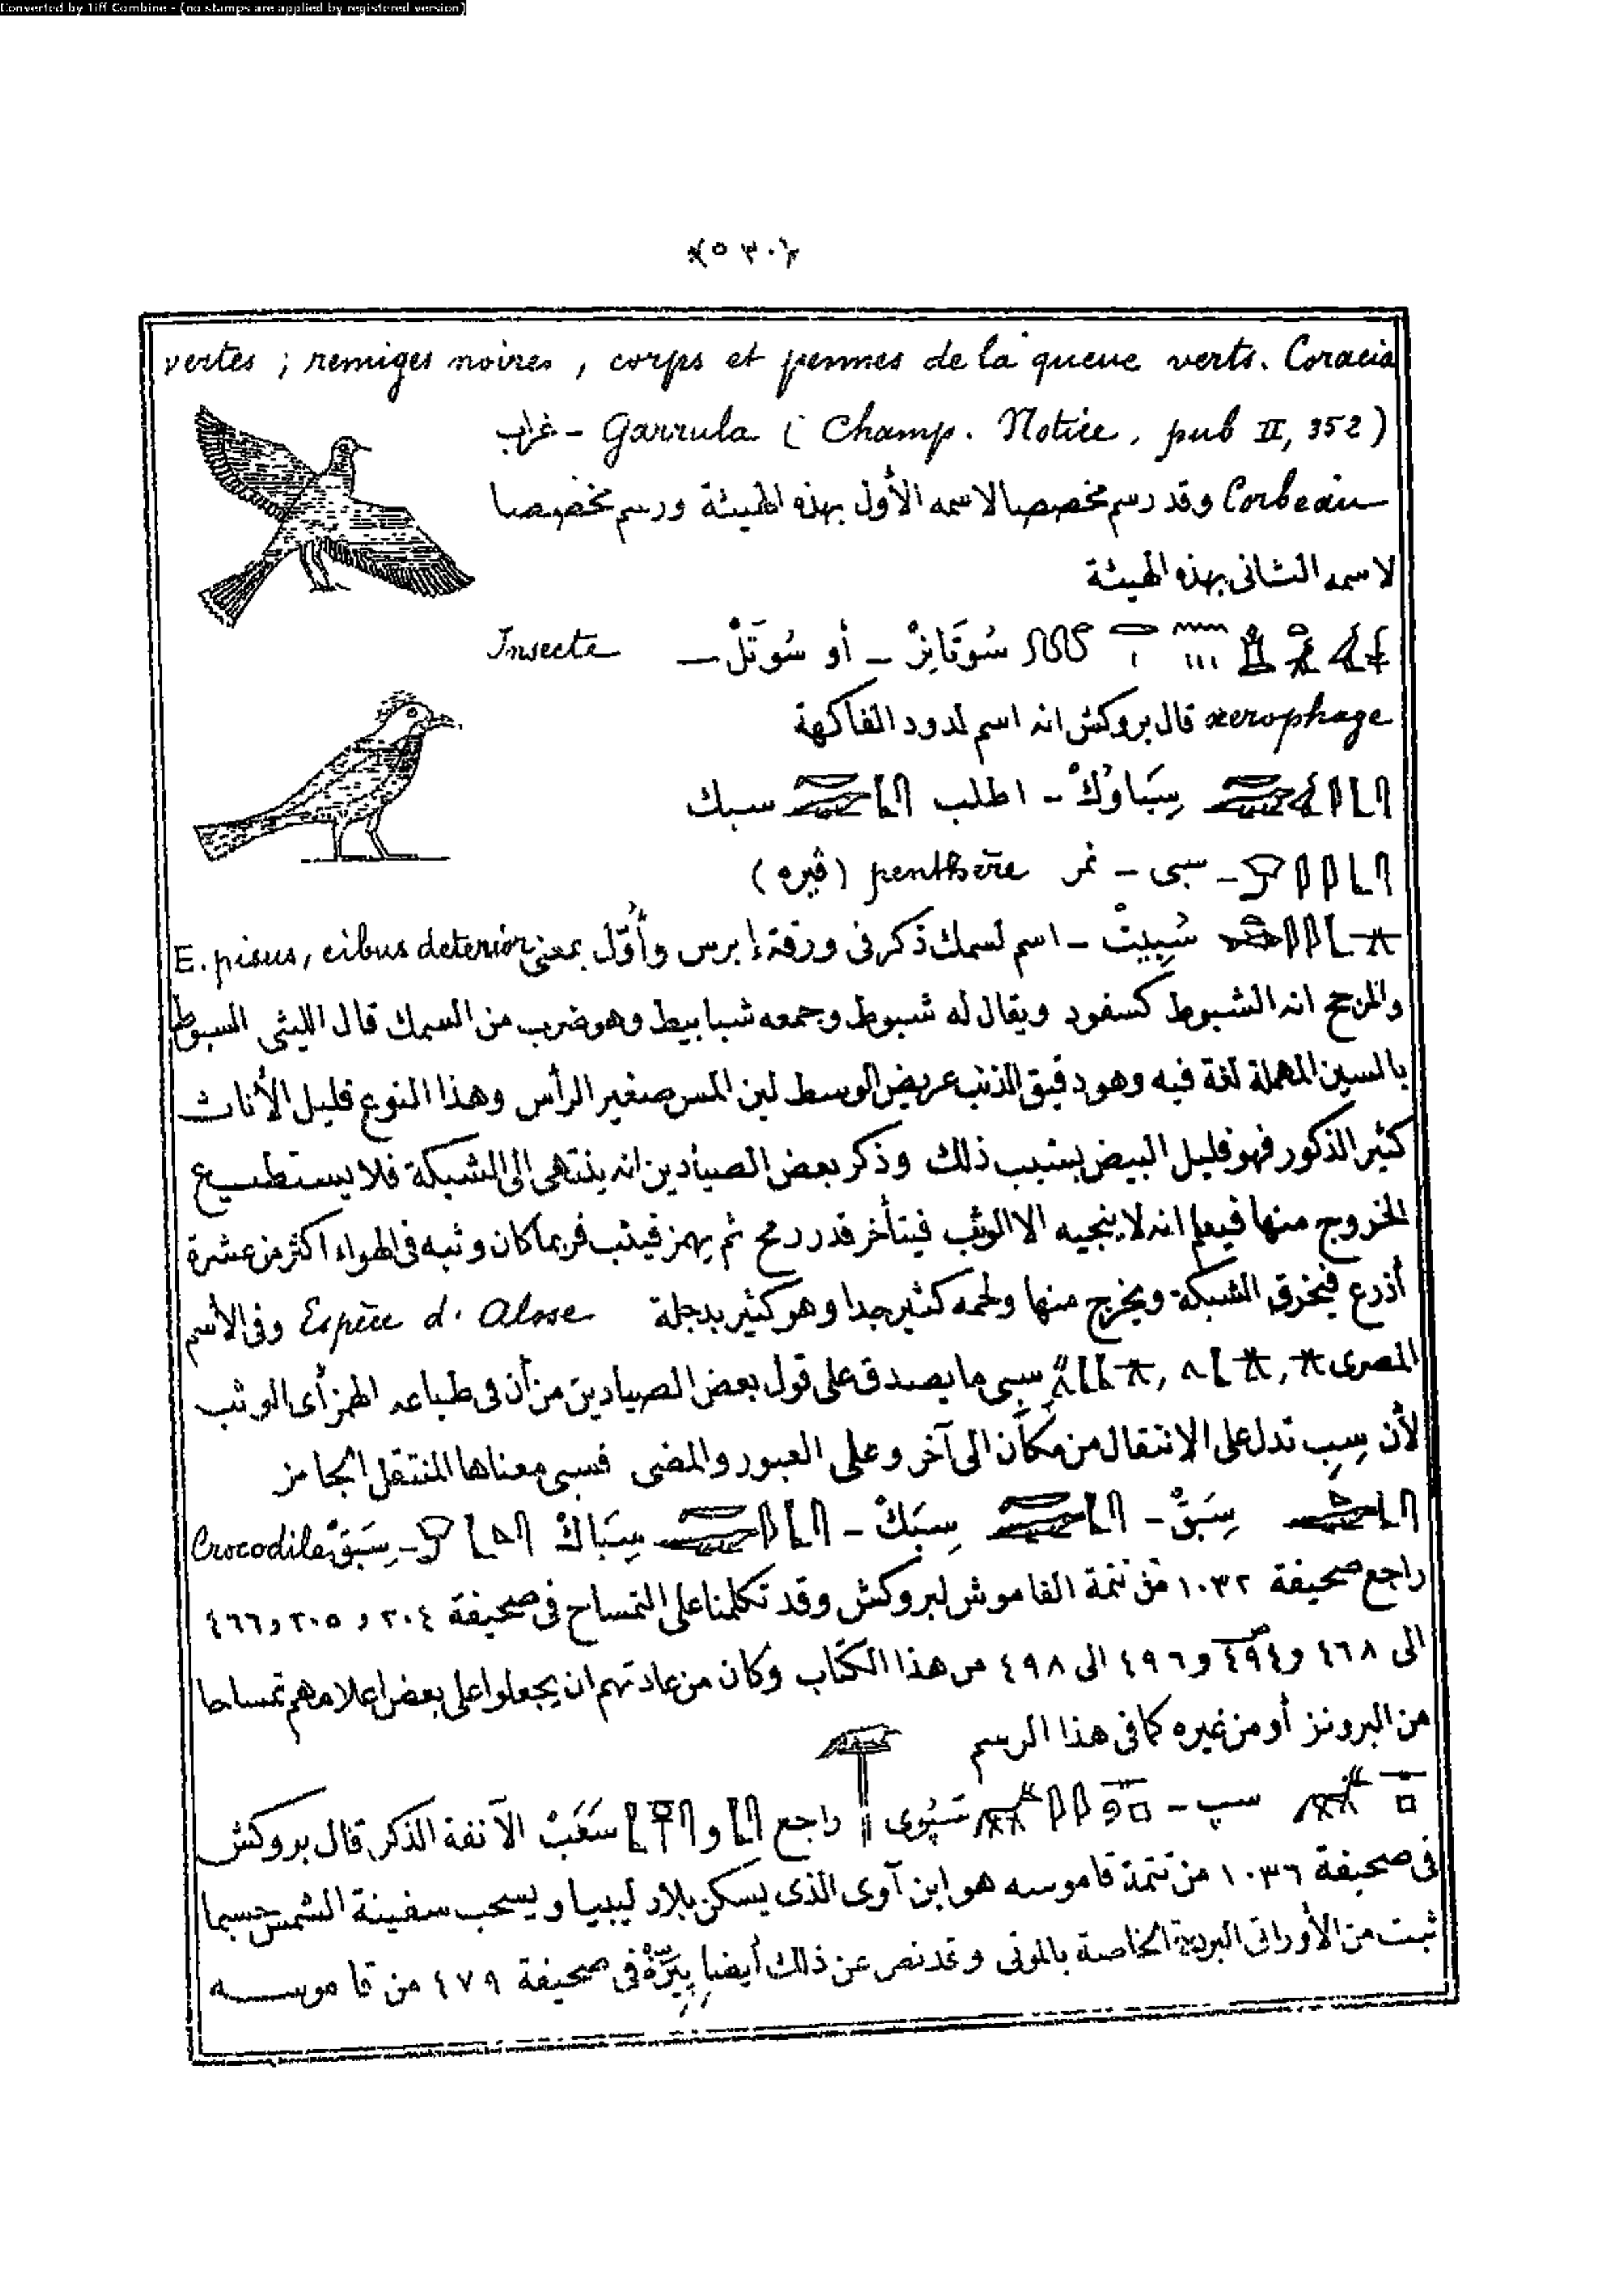 Converted by Tiff Combine - (no stamps are applied by registered version)
﴿٥٣٠﴾
vertes ; remiges noires , corps et pennes de la queue verts. Coracia
Garrula ( Champ. Notice , pub II, 352 ) - غراب
Corbeau وقد رسم مخصصا لاسمه الأول بهذه الهيئة ورسم مخصصا
لاسمه الثانى بهذه الهيئة
سُوتَانِزْ - أو سُوتَلْ - Insecte
xerophage قال بروكش انه اسم لدود الفاكهة
سِبَاوُكْ - اطلب سبك
- سبى - نمر penthère
شِبِيتْ - اسم لسمك ذكر فى ورقة إبرس وأُوّل بمعنى E. pisus, cibus deterior
والمرجح انه الشبوط كسفود ويقال له شبوط وجمعه شبابيط وهو ضرب من السمك قال الليثى السبوط
بالسين المهملة لغة فيه وهو دقيق الذنب عريض الوسط لين المس صغير الرأس وهذا النوع قليل الأناث
كثير الذكور فهو قليل البيض بسبب ذلك وذكر بعض الصيادين انه ينتهى الى الشبكة فلا يستطيع
الخروج منها فيعلم انه لا ينجيه الا الوثب فيتأخر قدر رمح ثم يهمز فيثب فربما كان وثبه فى الهواء اكثر من عشرة
أذرع فيخرق الشبكة ويخرج منها ولحمه كثير جدا وهو كثير بدجلة Espèce d. Alose وفى الأسم
المصرى سبى ما يصدق على قول بعض الصيادين من أن فى طباعه الهمز أى الوثب
لأن سِبِ تدل على الانتقال من مكان الى آخر وعلى العبور والمضى فسبى معناها المنتقل الجامز
سِبَقْ - سِبَكْ - سِبَاكْ - سِبَقْ Crocodile
راجع صحيفة ١٠٣٢ من تتمة القاموش لبروكش وقد تكلمنا على التمساح فى صحيفة ٢٠٤ و ٢٠٥ و ٤٦٦
الى ٤٦٨ و ٤٩٤ و ٤٩٦ الى ٤٩٨ من هذا الكتاب وكان من عادتهم ان يجعلوا على بعض اعلامهم تمساحا
من البرونز أو من غيره كما فى هذا الرسم
سپ - راجع و سَعَبْ الآنفة الذكر قال بروكش
فى صحيفة ١٠٣٦ من تتمة قاموسه هو ابن آوى الذى يسكن بلاد ليبيا ويسحب سفينة الشمس حسبما
ثبت من الأوراق البردية الخاصة بالموتى وقد نص عن ذالك أيضا پِيَرّهْ فى صحيفة ٤٧٩ من قاموسه